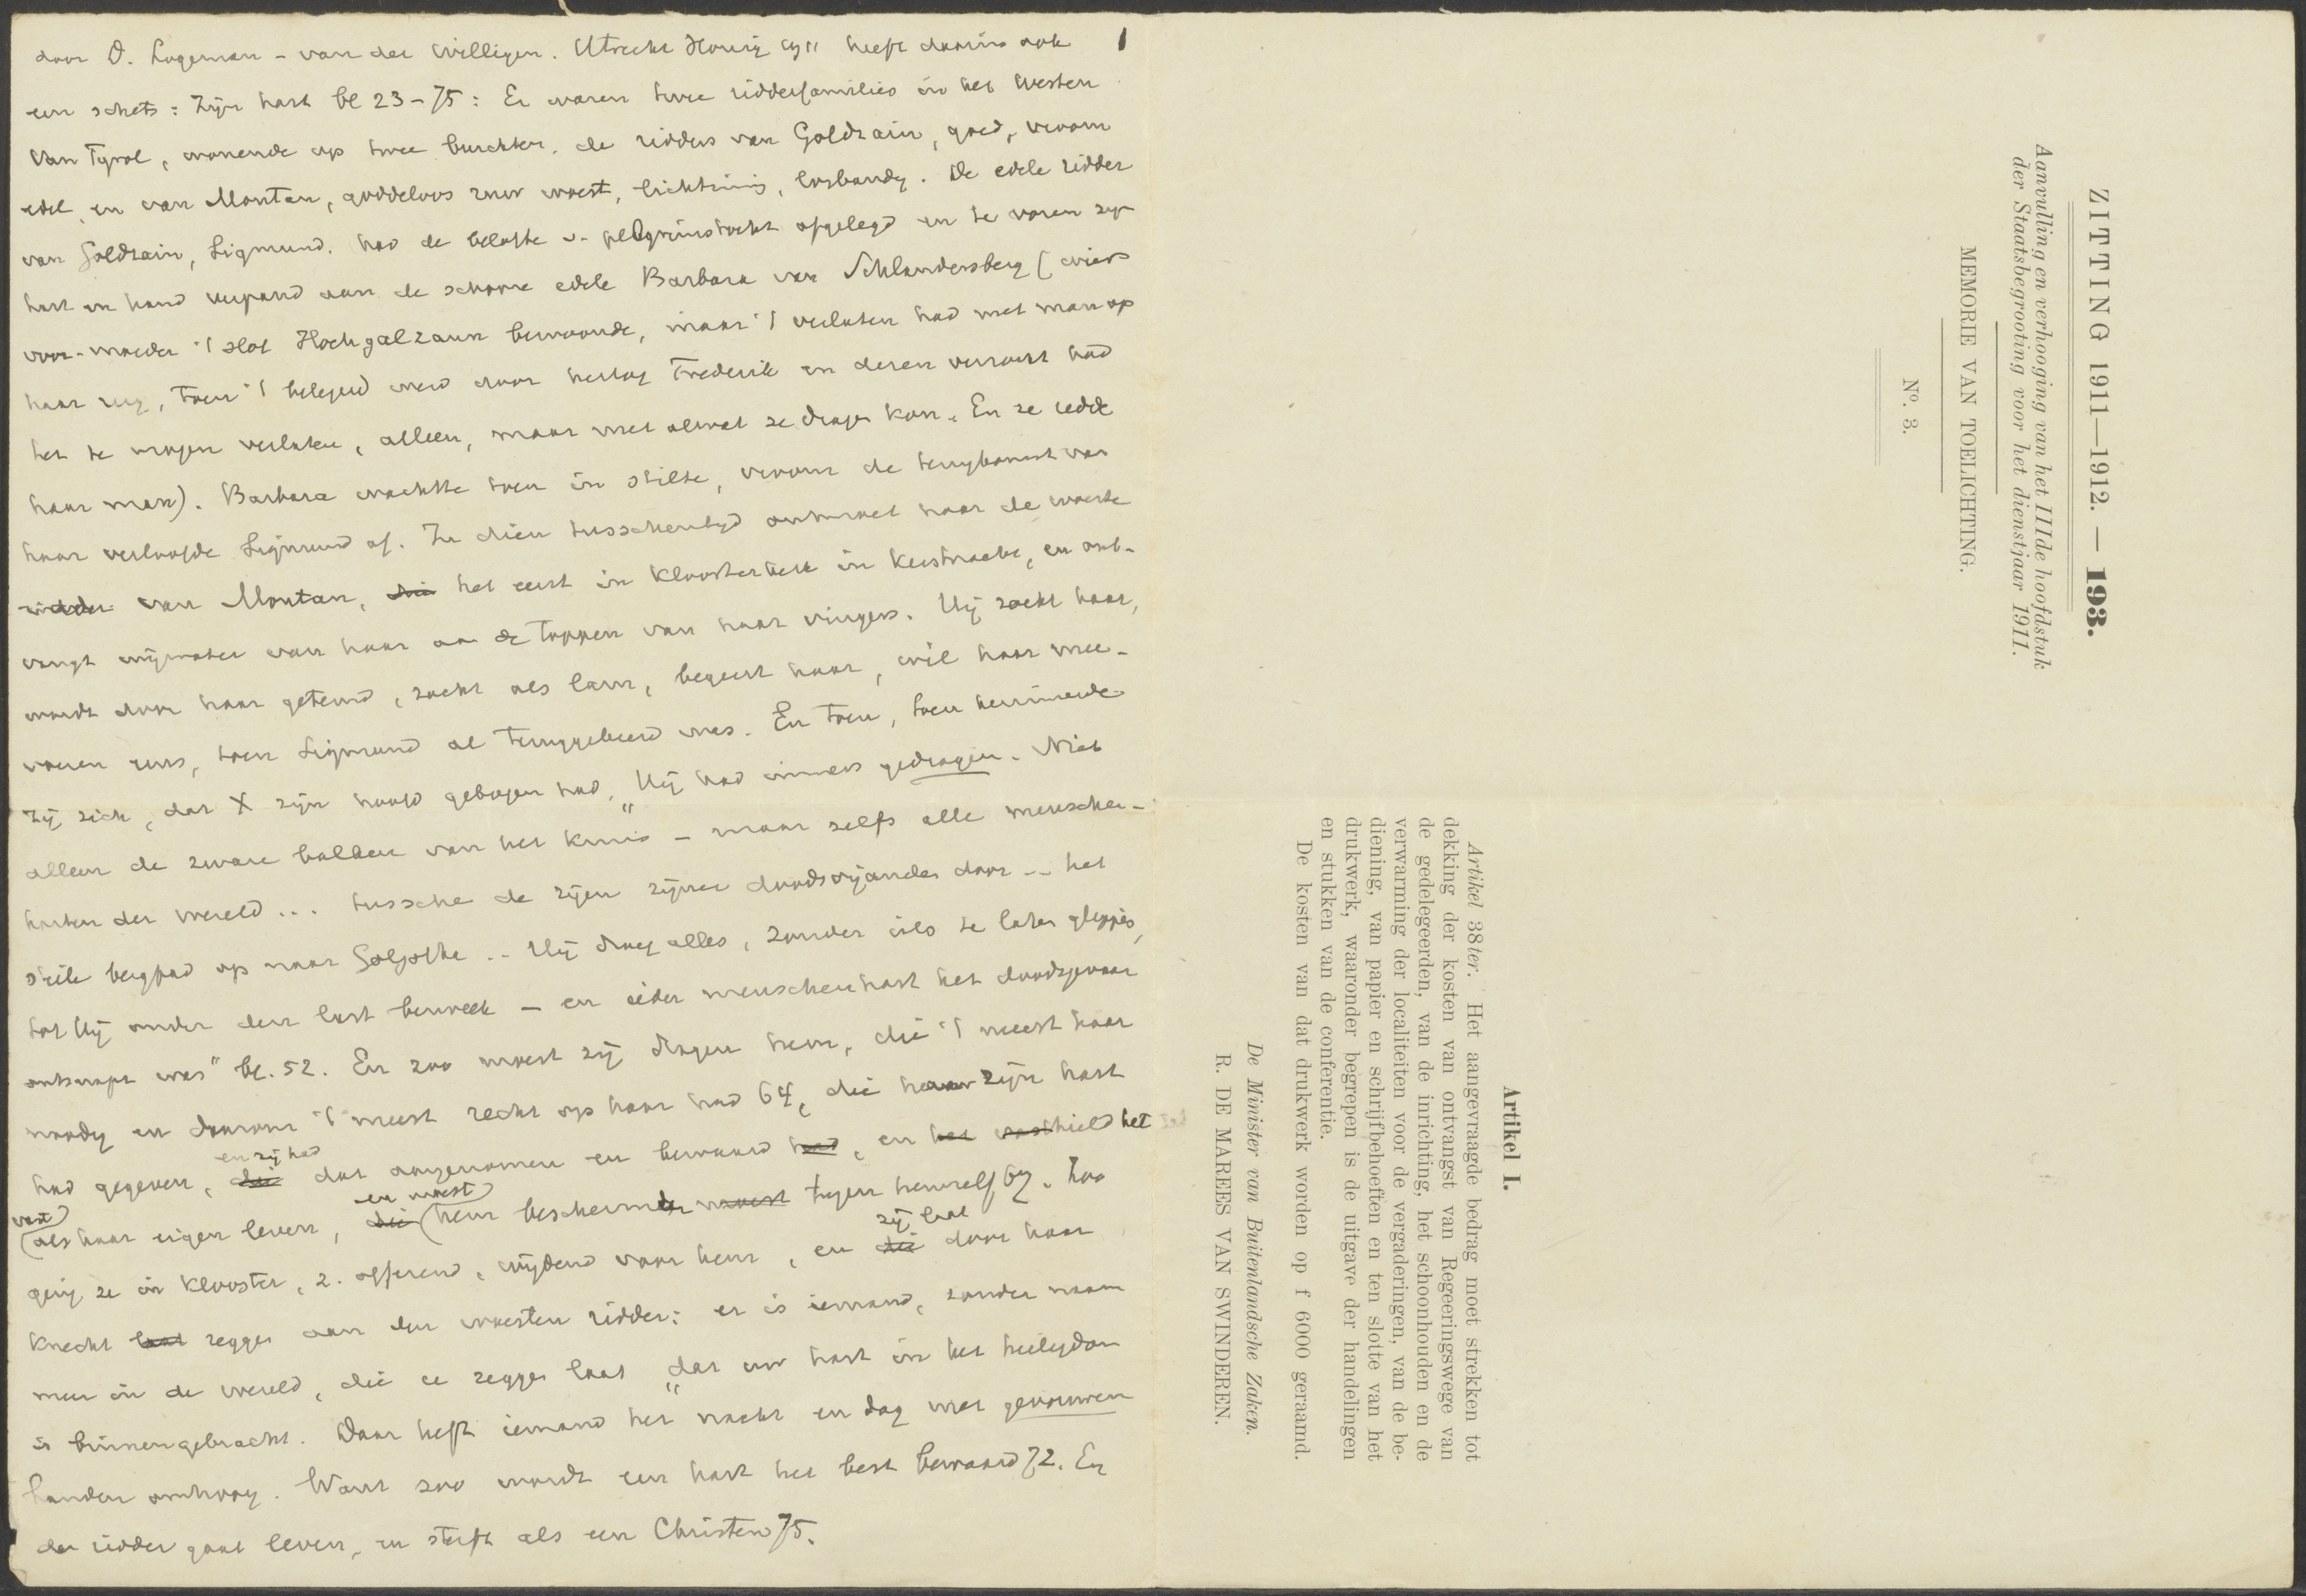 door D. Logeman - van der Willigen. Utrecht Honig 1911 heeft daarin ook 1
een schets: Zijn hart bl 23-75: Er waren twee ridderfamilies in het Westen
van Tyrol, wonende op twee burchten, de ridders van Goldrain, goed, vroom
edel, en van Montan, goddeloos ruw woest, lichtzinnig, losbandig. De edele ridder
van Goldrain, Sigmund, had de belofte v. pelgrimstocht afgelegd en te voren zijn
hart en hand verpand aan de schoone edele Barbara van Schlandersberg (wier
voor-moeder 't slot Hochgalzaun bewoonde, maar 't verlaten had met man op
haar rug, toen 't belegerd werd door hertog Frederik en deren verzocht had
het te mogen verlaten, alleen, maar met alwat ze dragen kon. En ze redde
haar man). Barbara wachtte toen in stilte, vroom de terugkomst van
haar verloofde Sigmund af. In dien tusschentijd ontmoet haar de woeste
ridder van Montan, die het eerst in Kloosterkerk in Kerstnacht, en ont-
vangt wijwater van haar aan de toppen van haar vingers. Hij zoekt haar,
wordt door haar getemd, zacht als lam, begeert haar, wil haar mee-
voeren eens, toen Sigmund al teruggekeerd was. En toen, toen herinnerde
zij zich, dat X zijn hoofd gebogen had, "Hij had immers gedragen. Niet
alleen de zware balken van het kruis - maar zelfs alle menschen-
harten der wereld ... tusschen de rijen zijner doodsvijanden door -- het
steile bergpad op naar Golgotha .. Hij droeg alles, zonder iets te laten glippen,
tot Hij onder den last bezweek - en ieder menschenhart het doodsgevaar
ontsnapt was" bl. 52. En zoo moest zij dragen hem, die 't meest haar
noodig en daarom 't meest recht op haar had 64, die haar zijn hart
had gegeven, die en zij had dat aangenomen en bewaard had, en het vasthield het
vast als haar eigen leven, die en moest hem beschermen moest tegen hemzelf 67. Zoo
ging ze in klooster, z. offerend, wijdend voor hem, en die zij laat door haar
knecht laat zeggen aan den woesten ridder: er is iemand, zonder naam
meer in de wereld, die u zeggen laat "dat uw hart in het heiligdom
is binnengebracht. Daar heft iemand het nacht en dag met gevouwen
handen omhoog. Want zoo wordt een hart het best bewaard 72. En
de ridder gaat leven, en sterft als een Christen 75.
ZITTING 1911—1912. — 193.
Aanvulling en verhooging van het IIIde hoofdstuk
der Staatsbegrooting voor het dienstjaar 1911.
MEMORIE VAN TOELICHTING.
N°. 3.
Artikel I.
Artikel 38ter. Het aangevraagde bedrag moet strekken tot
dekking der kosten van ontvangst van Regeeringswege van
de gedelegeerden, van de inrichting, het schoonhouden en de
verwarming der localiteiten voor de vergaderingen, van de be-
diening, van papier en schrijfbehoeften en ten slotte van het
drukwerk, waaronder begrepen is de uitgave der handelingen
en stukken van de conferentie.
De kosten van dat drukwerk worden op f 6000 geraamd.
De Minister van Buitenlandsche Zaken.
R. DE MAREES VAN SWINDEREN.